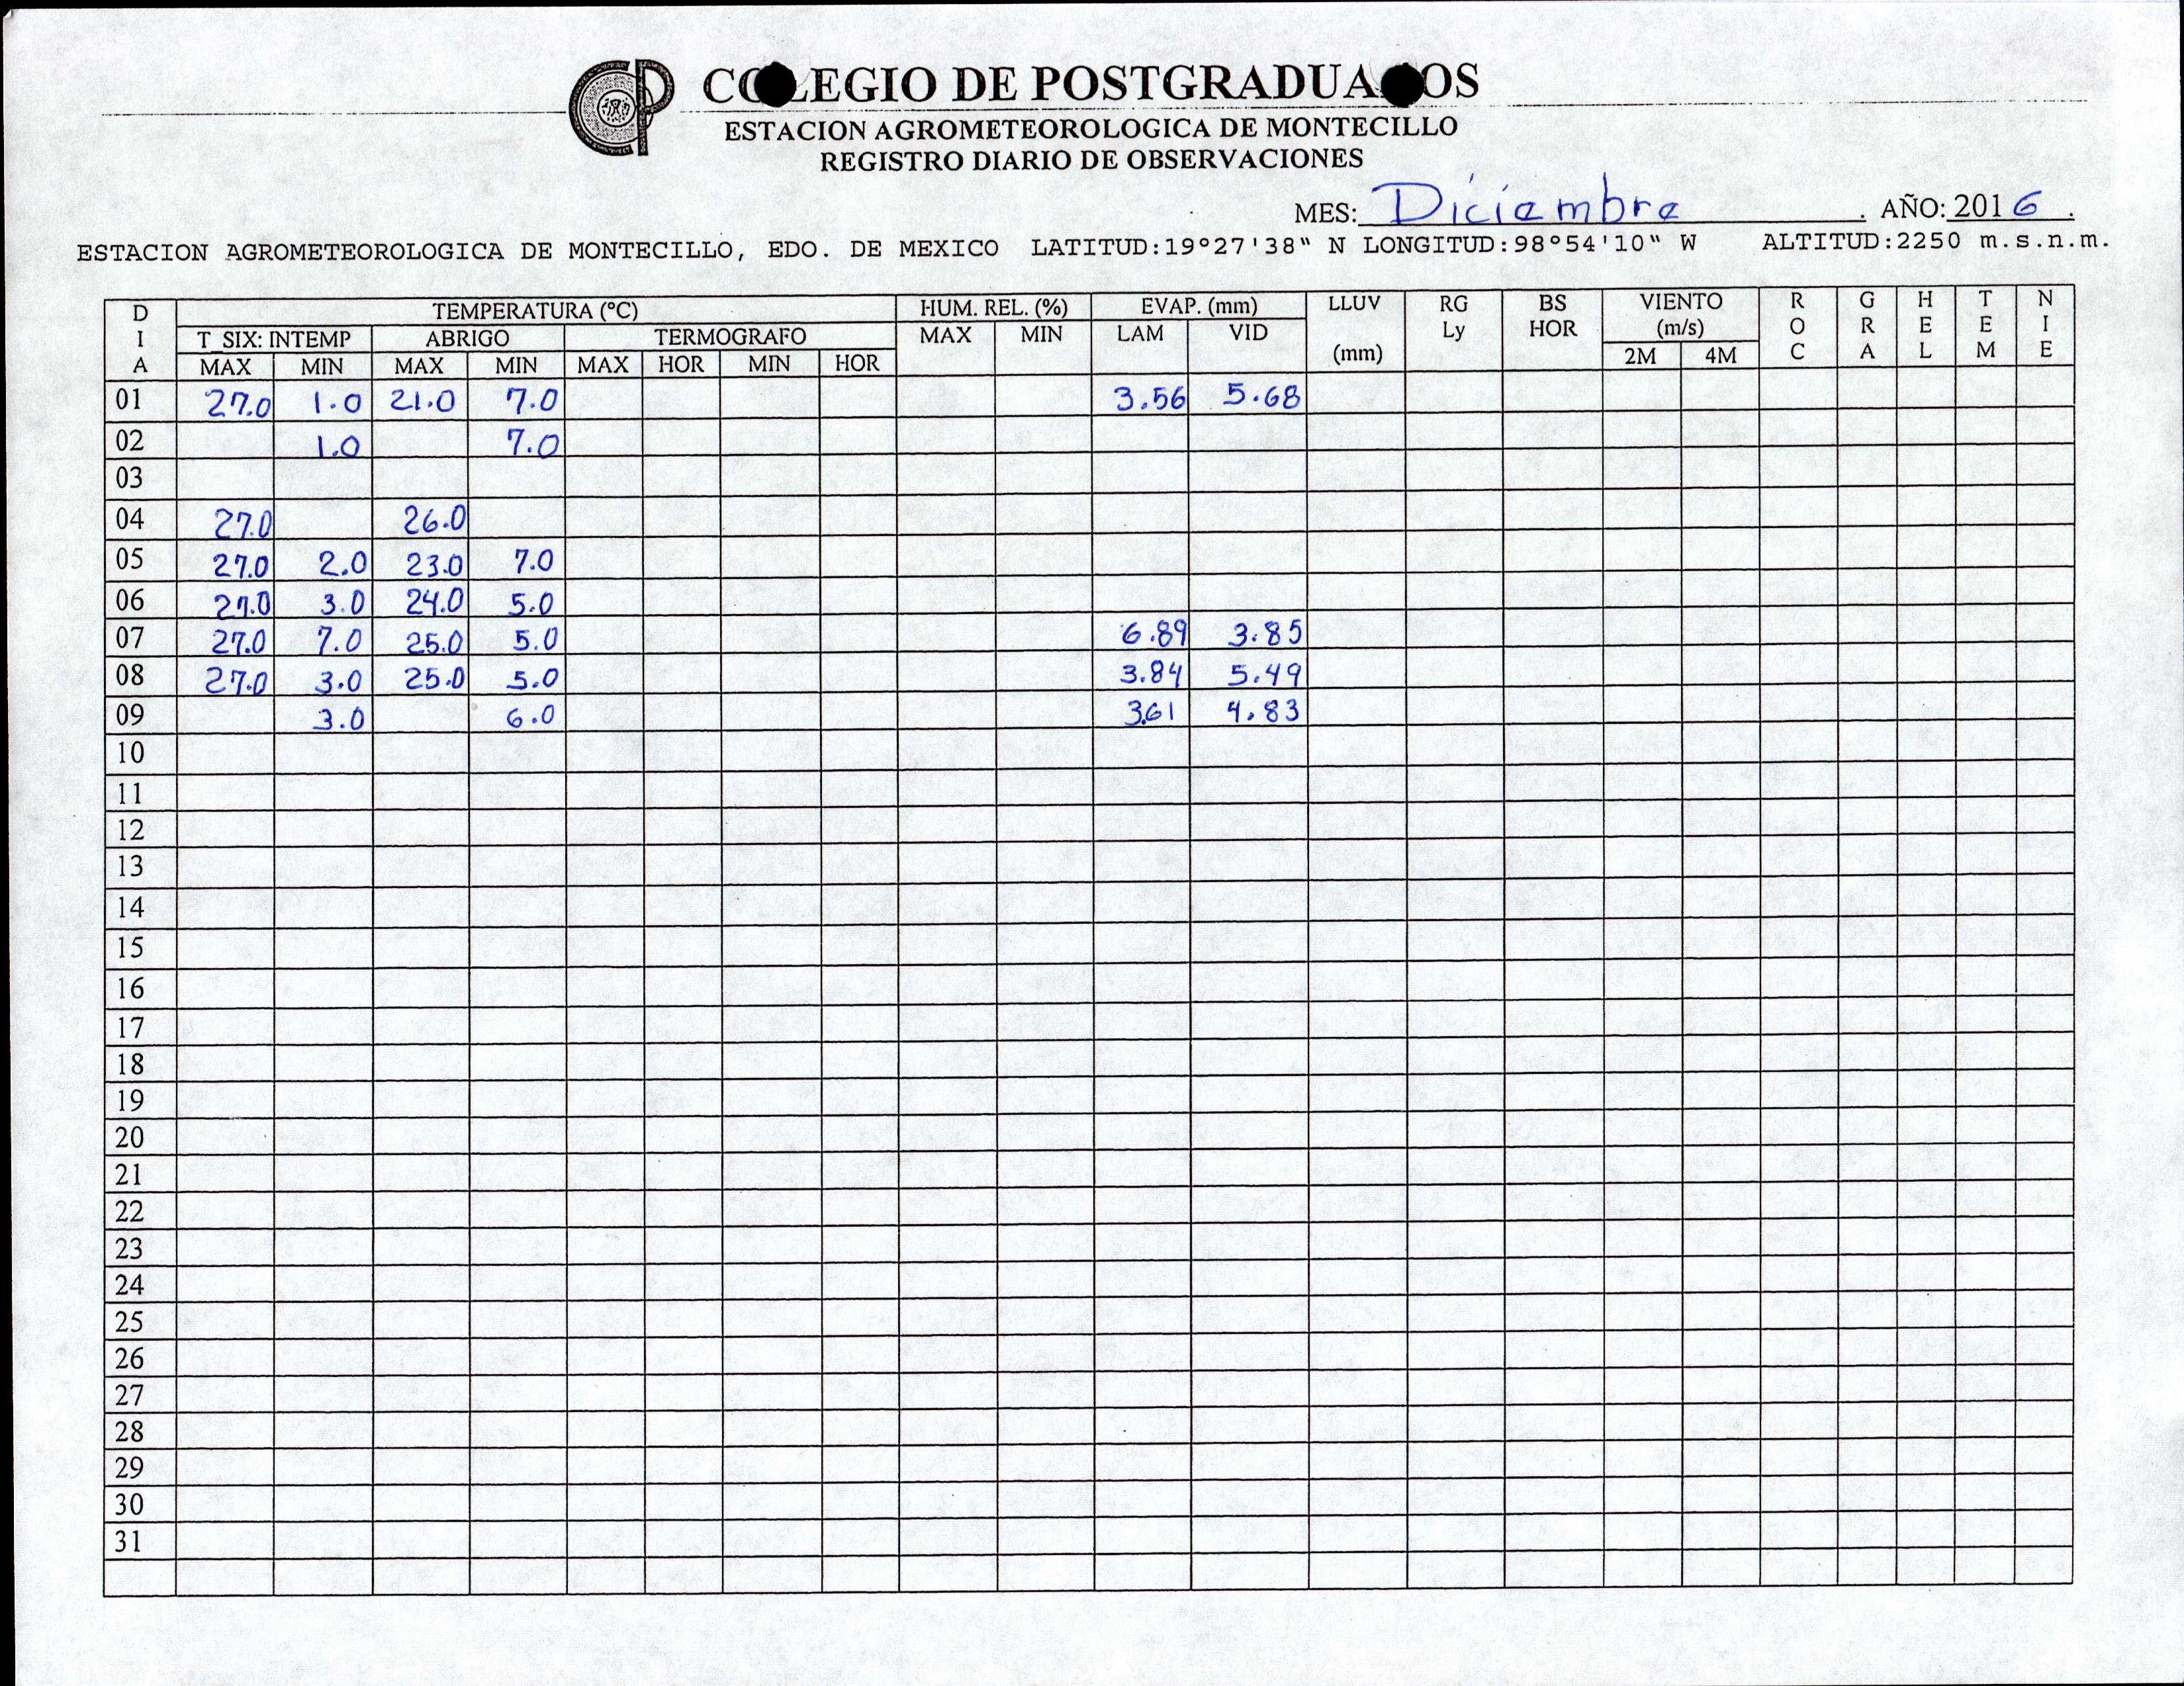 CP COLEGIO DE POSTGRADUADOS
ESTACION AGROMETEOROLOGICA DE MONTECILLO
REGISTRO DIARIO DE OBSERVACIONES
MES: Diciembre . AÑO: 2016 .
ESTACION AGROMETEOROLOGICA DE MONTECILLO, EDO. DE MEXICO LATITUD:19°27'38" N LONGITUD:98°54'10" W ALTITUD:2250 m.s.n.m.
DIA TEMPERATURA (°C) HUM. REL. (%) EVAP. (mm) LLUV (mm) RG Ly BS HOR VIENTO (m/s) ROC GRA HEL TEM NIE
T SIX: INTEMP ABRIGO TERMOGRAFO MAX MIN LAM VID
MAX MIN MAX MIN MAX HOR MIN HOR 2M 4M
01 27.0 1.0 21.0 7.0 3.56 5.68
02 1.0 7.0
03
04 27.0 26.0
05 27.0 2.0 23.0 7.0
06 27.0 3.0 24.0 5.0
07 27.0 7.0 25.0 5.0 6.89 3.85
08 27.0 3.0 25.0 5.0 3.84 5.49
09 3.0 6.0 3.61 4.83
10
11
12
13
14
15
16
17
18
19
20
21
22
23
24
25
26
27
28
29
30
31